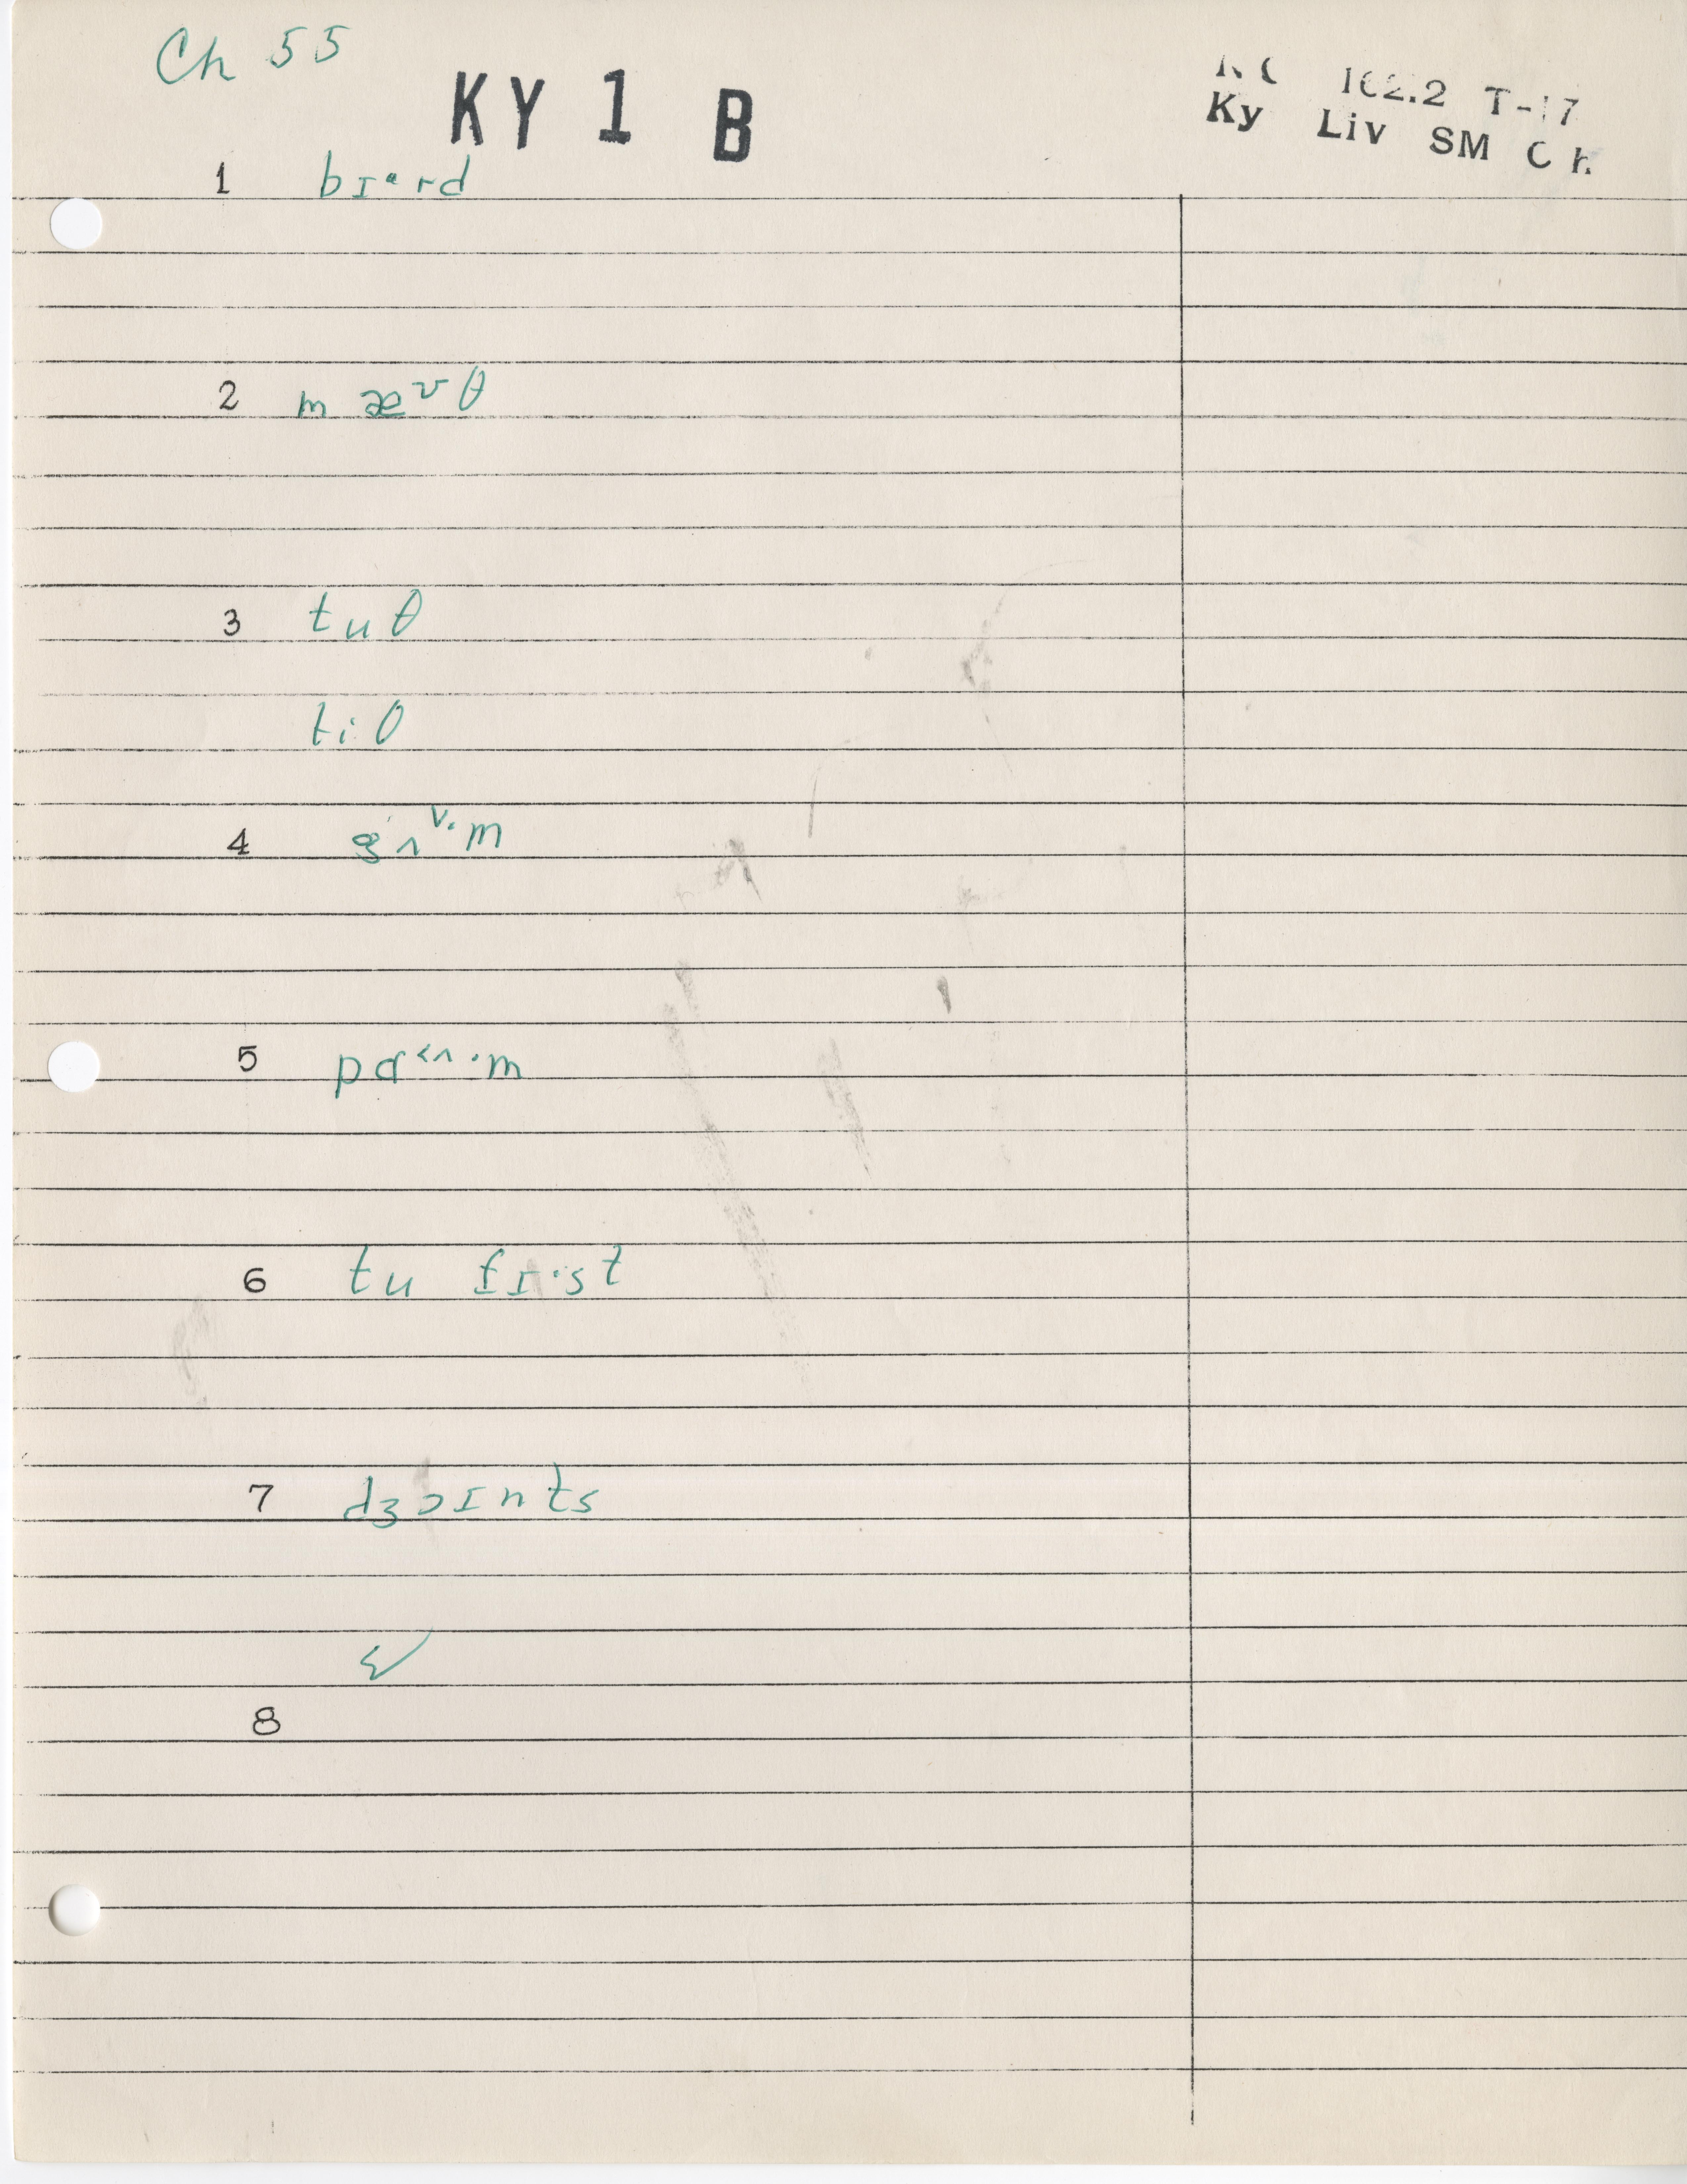 Ch 55
KY 1 B
162.2 T-17
Ky Liv SM Ch
1 bɪᵊrd
2 m æᶷ θ
3 tuθ
tiθ
4 gʌᵛ·m
5 pɑ˂ʌ·m
6 tu fɪ·st
7 dʒɔɪnts
8